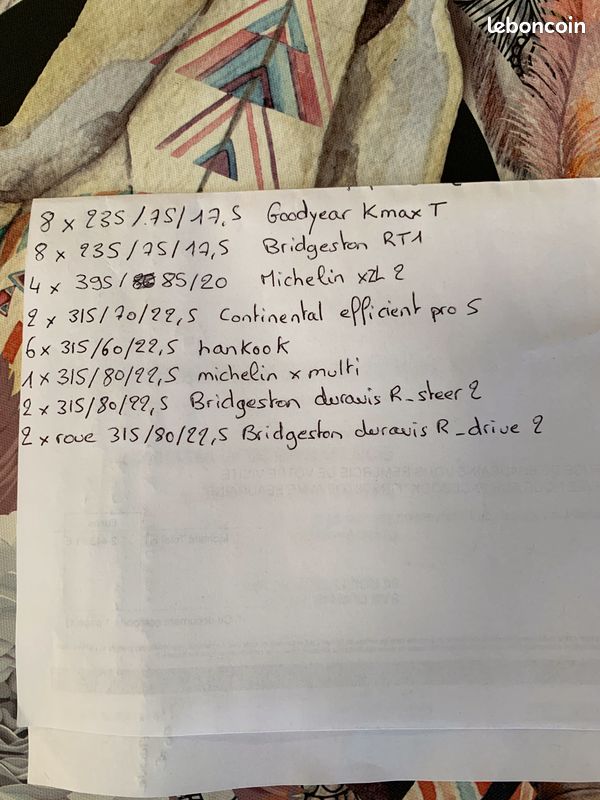 leboncoin
8 x 235/75/17,5 Goodyear Kmax T
8 x 235/75/17,5 Bridgeston RT1
4 x 395/85/20 Michelin xzl 2
2 x 315/70/22,5 Continental efficient pro S
6 x 315/60/22,5 hankook
1 x 315/80/22,5 michelin x multi
2 x 315/80/22,5 Bridgeston duravis R_steer 2
2 x roue 315/80/22,5 Bridgeston duravis R_drive 2